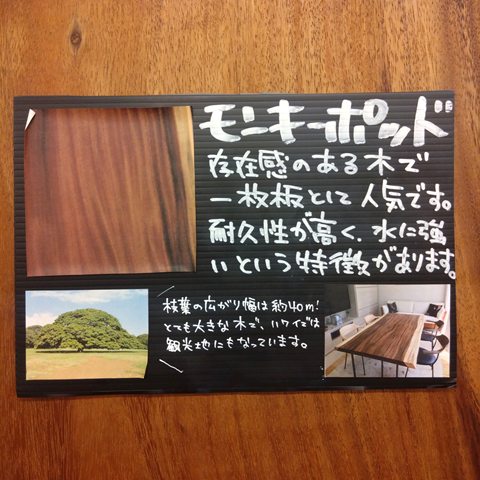 モンキーポッド
存在感のある木で
一枚板として人気です。
耐久性が高く、水に強
いという特徴があります。
枝葉の広がり幅は約40m!
とても大きな木で、ハワイでは
観光地にもなっています。